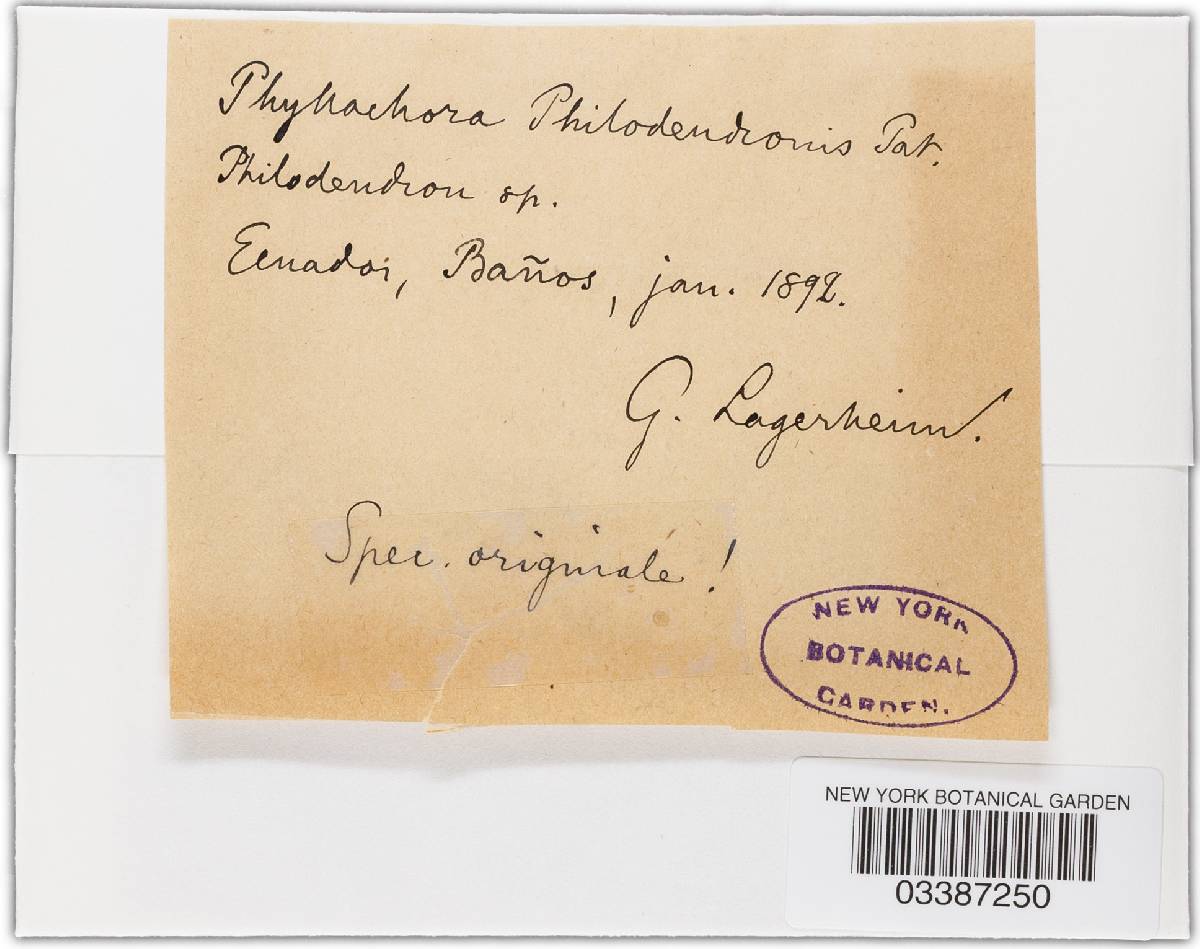 Phyllachora Philodendronis Pat.
Philodendron sp.
Ecuador, Baños, jan. 1892.
G. Lagerheim.
Spec. originale!
NEW YORK
BOTANICAL
GARDEN.
NEW YORK BOTANICAL GARDEN
03387250